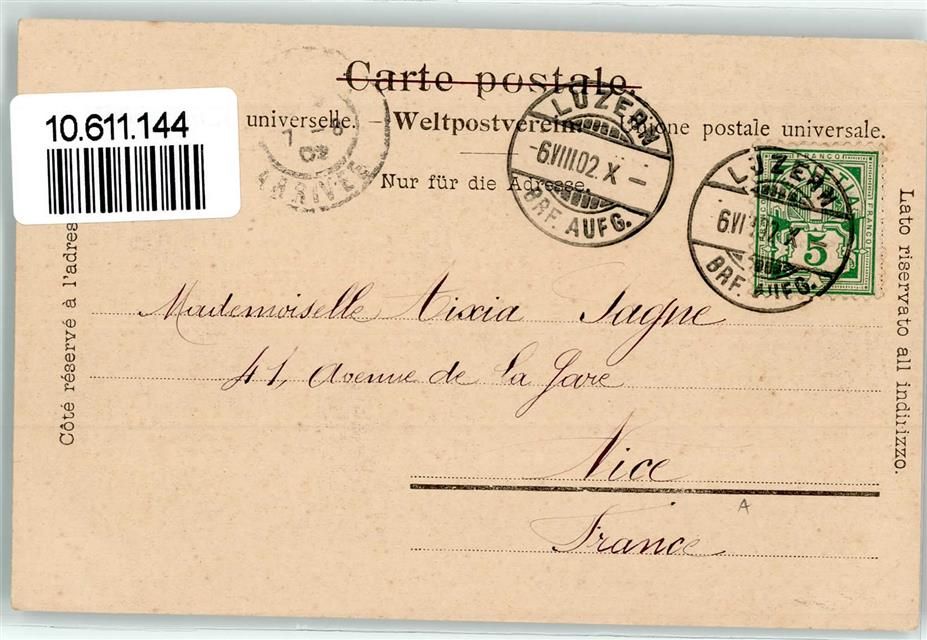 Carte postale.
10.611.144
universelle. — Weltpostverein. — Unione postale universale.
Nur für die Adresse.
7 - 8
02
ARRIVÉE
LUZERN
-6VIII02 X -
BRF. AUFG.
LUZERN
BRF. AUFG.
FRANCO
FRANCO
5
Côté réservé à l'adres
Lato riservato all indirizzo.
Mademoiselle Aixia Sagne
41, Avenue de la Gare
Nice
A
France